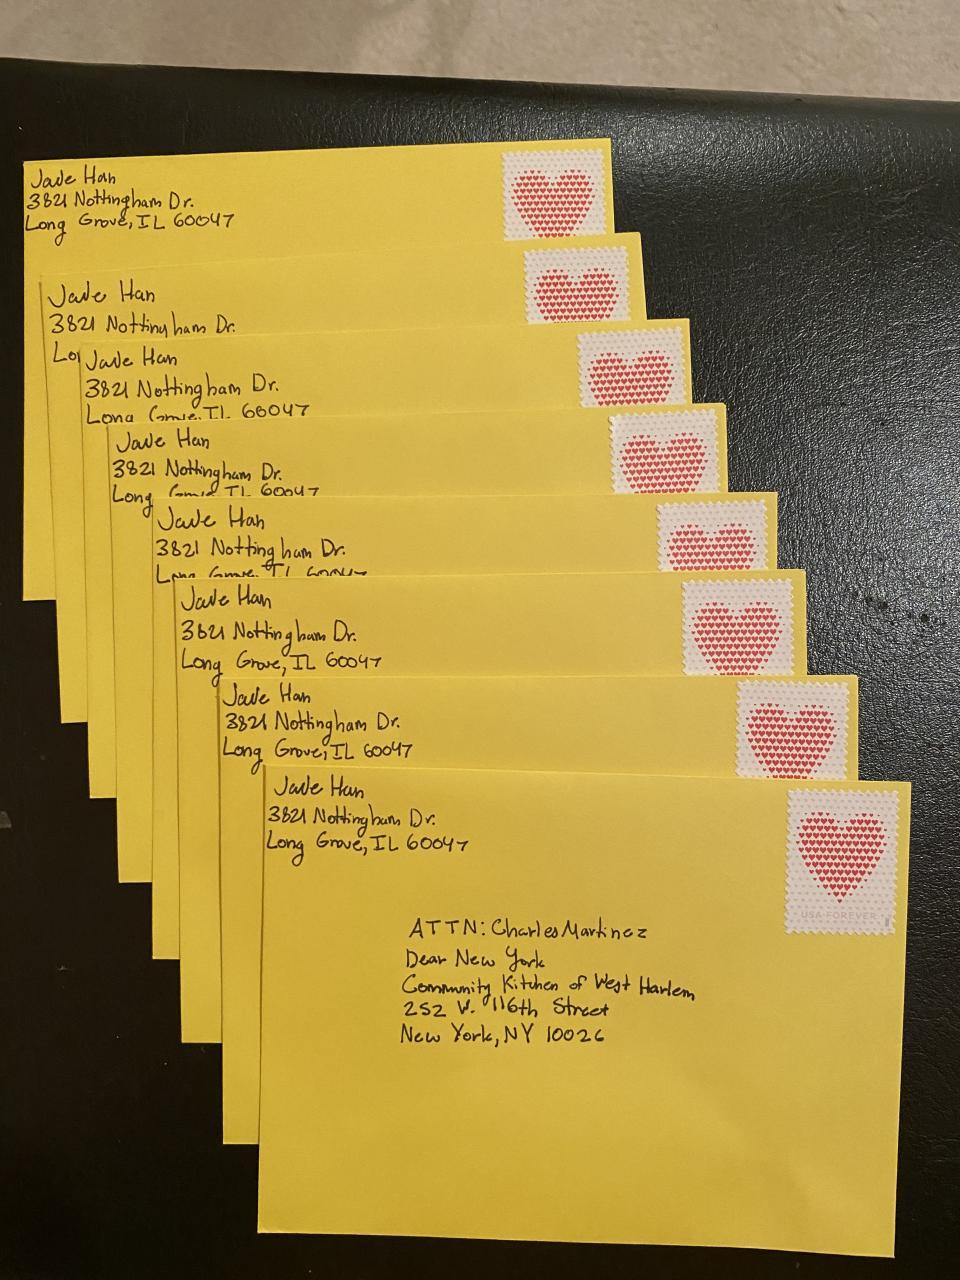 Jade Han
3821 Nottingham Dr.
Long Grove, IL 60047
Jade Han
3821 Nottingham Dr.
Jade Han
3821 Nottingham Dr.
Long Grove, IL 60047
Jade Han
3821 Nottingham Dr.
Long Grove, IL 60047
Jade Han
3821 Nottingham Dr.
Long Grove, IL 60047
Jade Han
3821 Nottingham Dr.
Long Grove, IL 60047
Jade Han
3821 Nottingham Dr.
Long Grove, IL 60047
Jade Han
3821 Nottingham Dr.
Long Grove, IL 60047
USA FOREVER
ATTN: Charles Martinez
Dear New York
Community Kitchen of West Harlem
252 W. 116th Street
New York, NY 10026